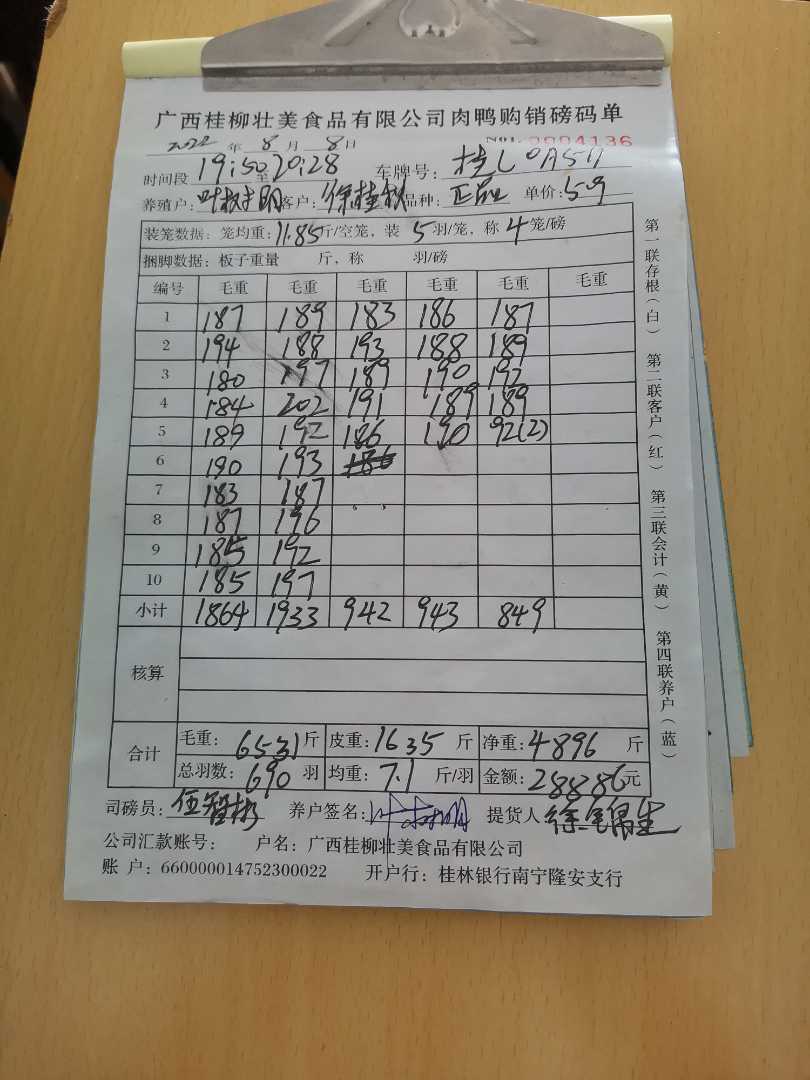 广西桂柳壮美食品有限公司肉鸭购销磅码单
2022 年 8 月 8 日 No1. 2994136
时间段 19:50 至 20:28 车牌号: 桂L0A511
养殖户: 叶树明 客户: 徐桂秋 品种: 正品 单价: 5.9
装笼数据: 笼均重: 11.85 斤/空笼, 装 5 羽/笼, 称 4 笼/磅
捆脚数据: 板子重量 斤, 称 羽/磅
编号 毛重 毛重 毛重 毛重 毛重 毛重
1 187 189 183 186 187
2 194 188 193 188 189
3 180 197 189 190 192
4 184 202 191 189 189
5 189 192 186 190 92(2)
6 190 193 186
7 183 187
8 187 196
9 185 192
10 185 197
小计 1864 1933 942 943 849
核算
合计 毛重: 6531 斤 皮重: 1635 斤 净重: 4896 斤
总羽数: 690 羽 均重: 7.1 斤/羽 金额: 28886 元
司磅员: 伍智彬 养户签名: 叶树明 提货人 徐
公司汇款账号: 户名: 广西桂柳壮美食品有限公司
账 户: 660000014752300022 开户行: 桂林银行南宁隆安支行
第一联存根(白) 第二联客户(红) 第三联会计(黄) 第四联养户(蓝)